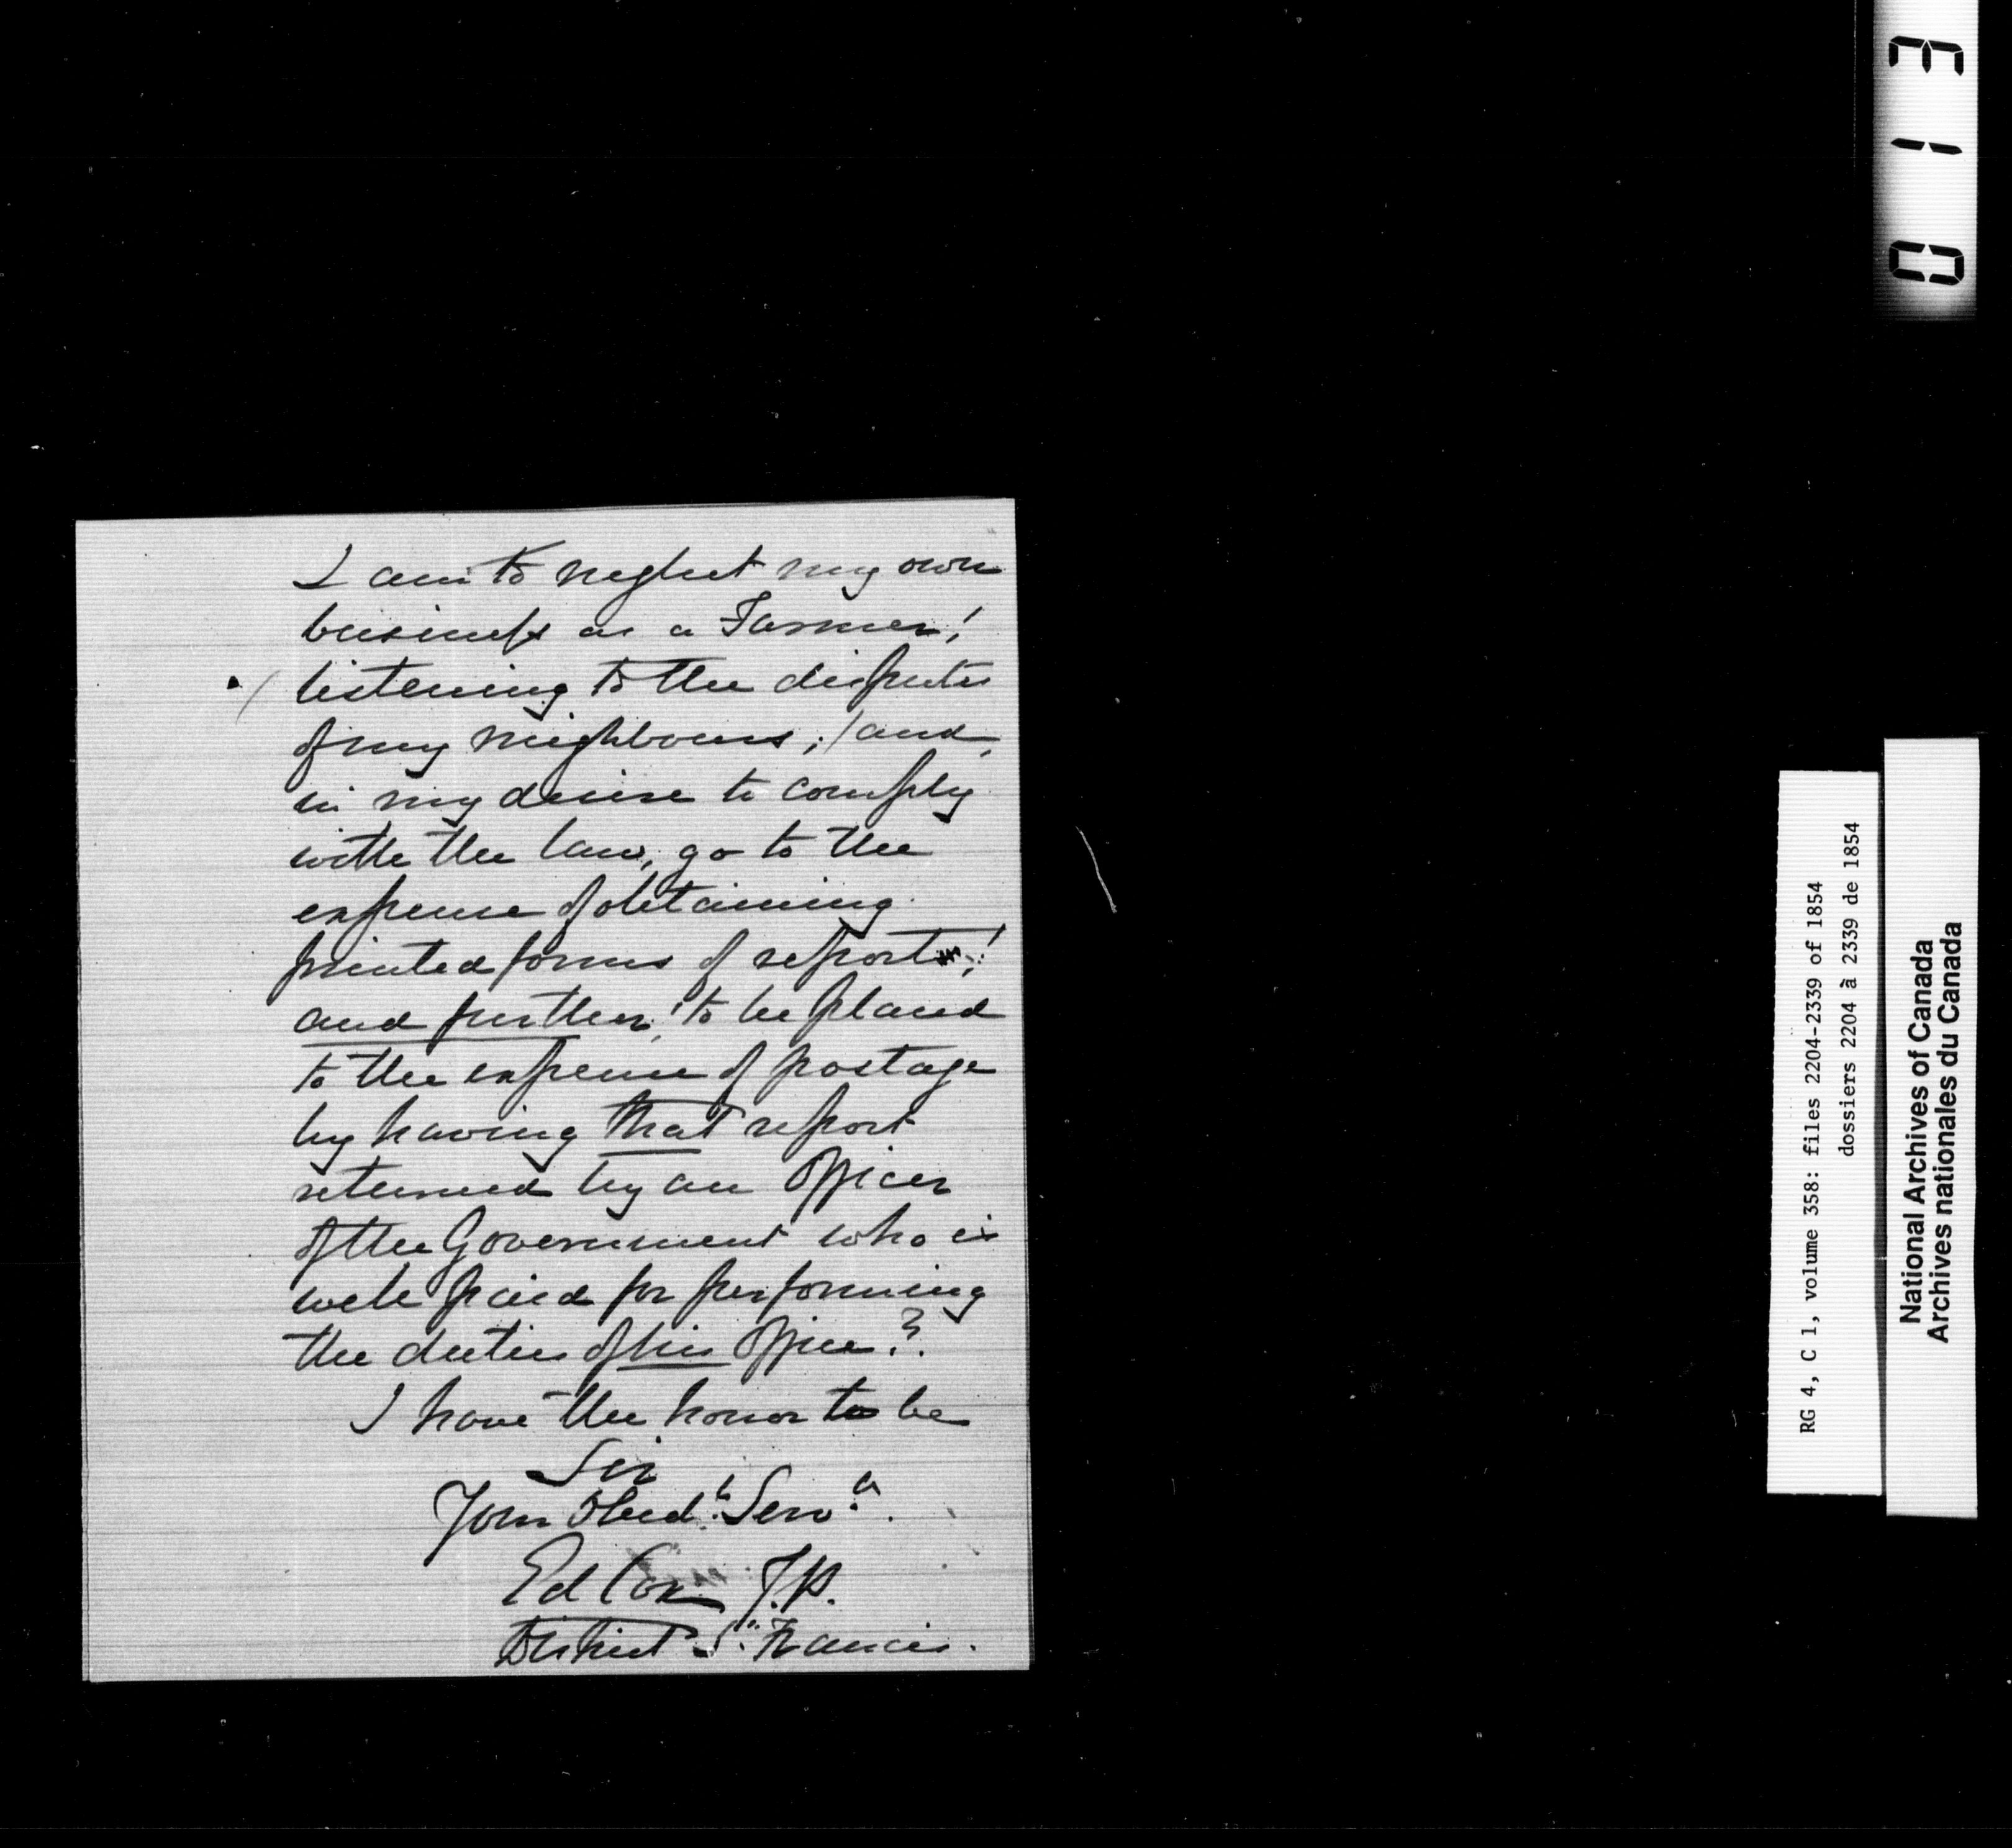 I am to neglect my own
business as a Farmer!
(listening to the disputes
of my neighbours;) and,
in my desire to comply
with the law, go to the
expense of obtaining
printed forms of report;!
and further! to be placed
to the expense of postage
by having that report
returned by an Officer
of the Government who is
well paid for performing
the duties of his Office?
I have the honor to be
Sir
Your Obedt. Serv
Ed Cox J.P.
District St. Francis.
013
RG 4, C 1, volume 358: files 2204-2339 of 1854
dossiers 2204 à 2339 de 1854
National Archives of Canada
Archives nationales du Canada